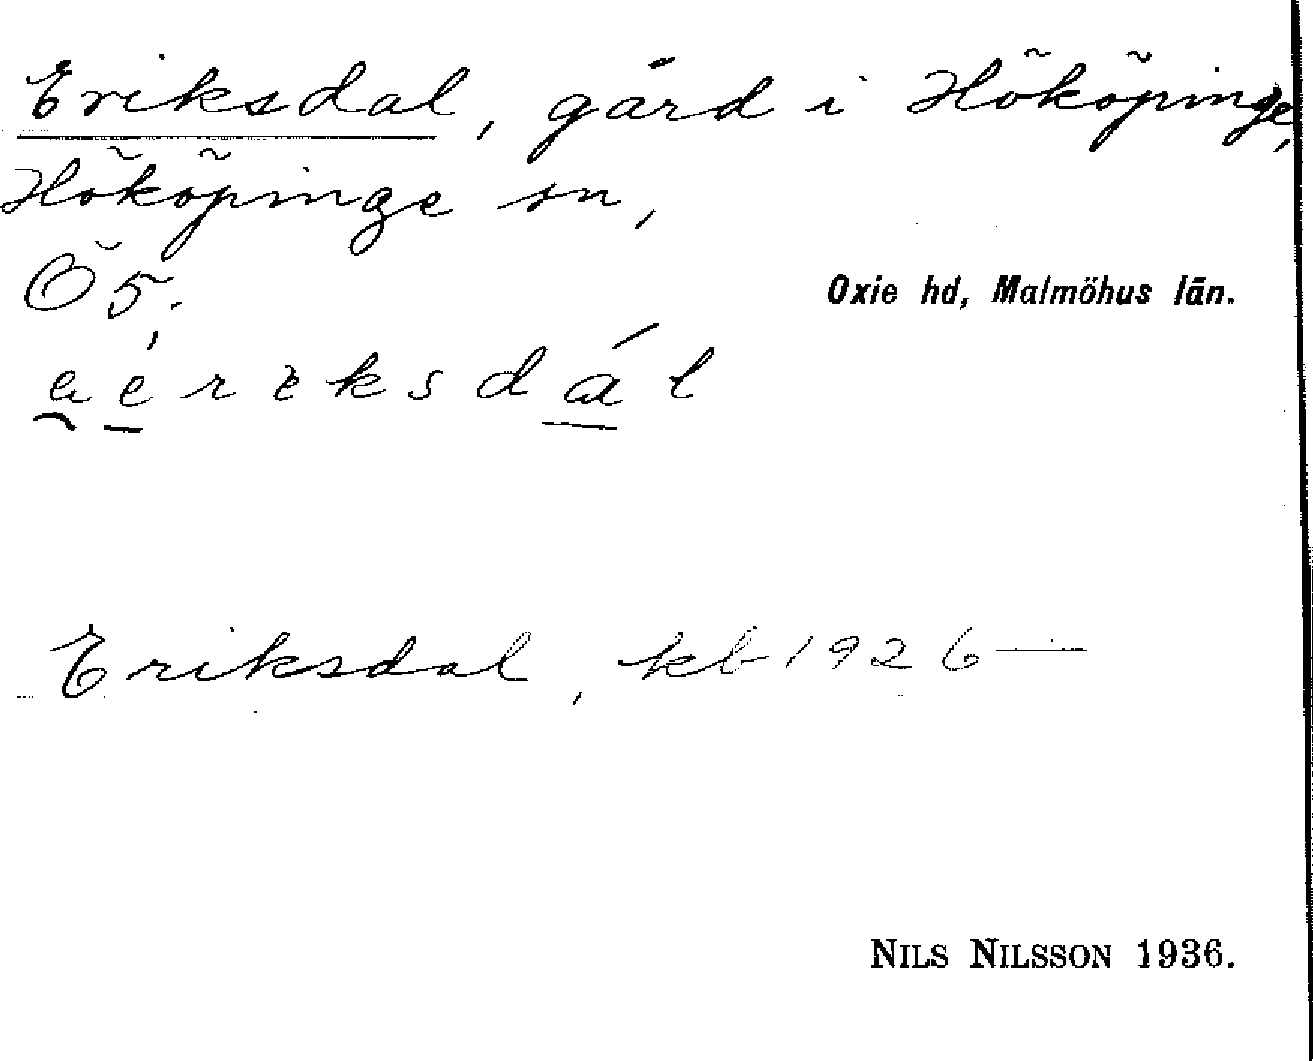 Eriksdal, gård i Hököpinge,
Hököpinge sn,
Ö5.
Oxie hd, Malmöhus län.
Eriksdal, kb 1926—
NILS NILSSON 1936.